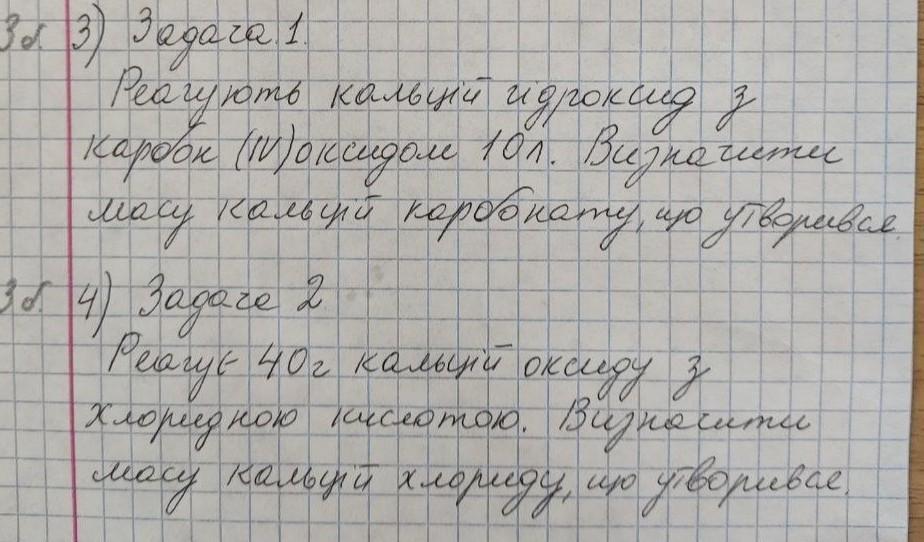 3б. 3) Задача 1.
Реагують кальцій гідроксид з
карбон (IV) оксидом 10л. Визначити
масу кальцій карбонату, що утворився.
3б. 4) Задача 2
Реагує 40г кальцій оксиду з
хлоридною кислотою. Визначити
масу кальцій хлориду, що утворився.